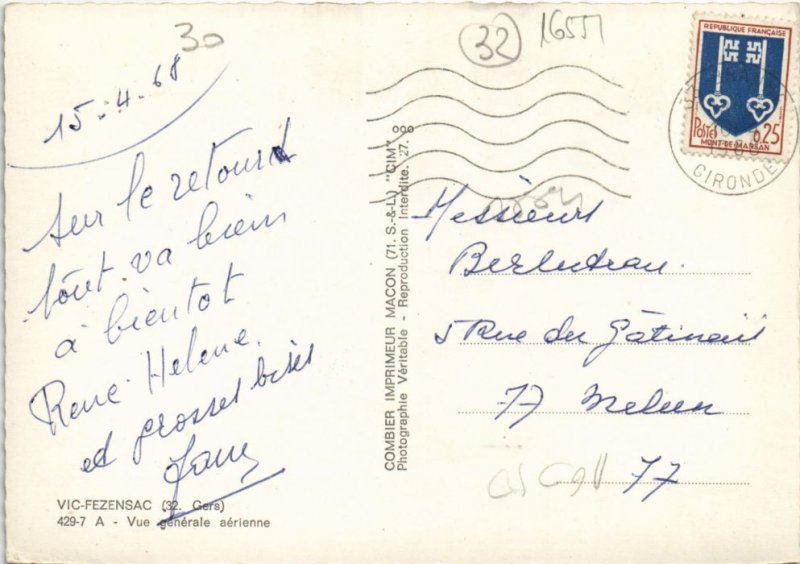 30
32
1655
15.4.68
Sur le retour
tout va bien
à bientot
René. Helene.
et grosses bises
VIC-FEZENSAC (32. Gers)
429-7 A - Vue générale aérienne
COMBIER IMPRIMEUR MACON (71. S.-&-L) "CIM"
Photographie Véritable - Reproduction Interdite. 27.
REPUBLIQUE FRANÇAISE
POSTES 0,25
MONT-DE-MARSAN
GIRONDE
Messieurs
5 Rue du Gâtinais
77 Melun
77